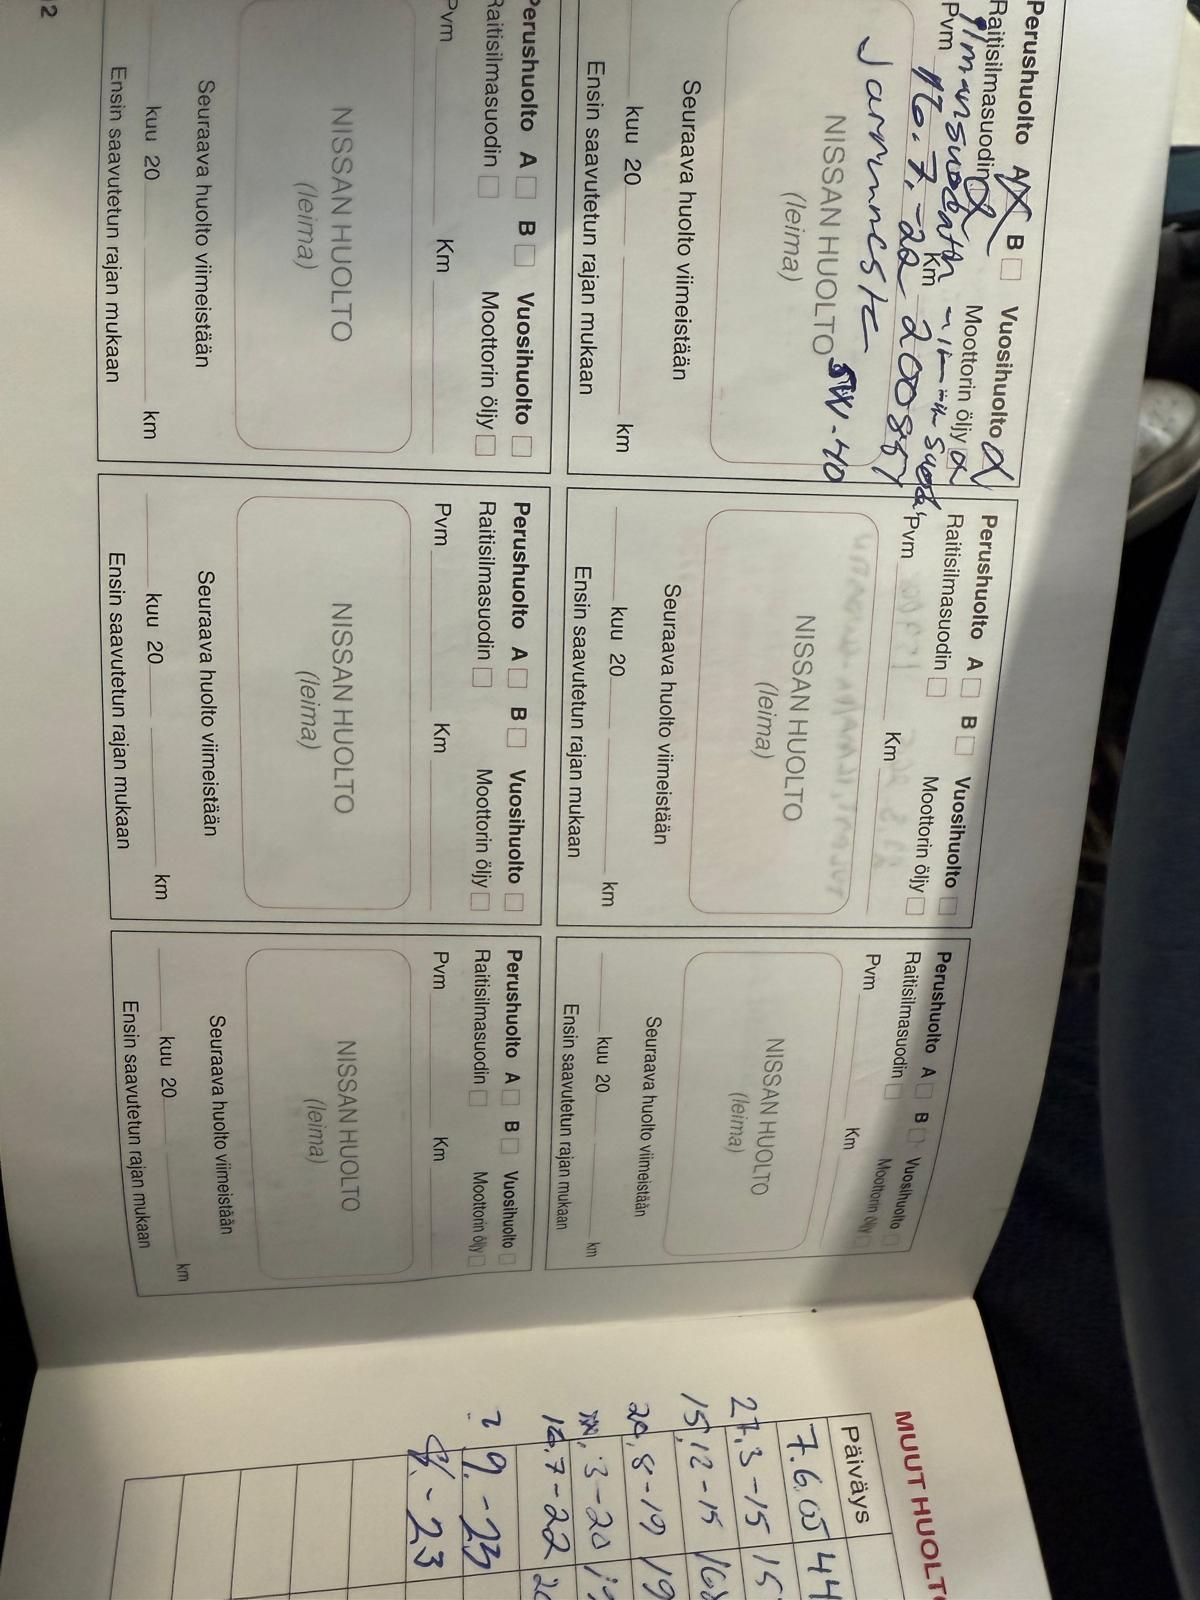 Perushuolto A B Vuosihuolto
Raitisilmasuodin Moottorin öljy
ilmansuodatin
Pvm 16.7.-22 Km 200887
NISSAN HUOLTO 5W-40
(leima)
Seuraava huolto viimeistään
kuu 20 km
Ensin saavutetun rajan mukaan
Perushuolto A B Vuosihuolto
Raitisilmasuodin Moottorin öljy
Pvm Km
NISSAN HUOLTO
(leima)
Seuraava huolto viimeistään
kuu 20 km
Ensin saavutetun rajan mukaan
Perushuolto A B Vuosihuolto
Raitisilmasuodin Moottorin öljy
Pvm Km
NISSAN HUOLTO
(leima)
Seuraava huolto viimeistään
kuu 20 km
Ensin saavutetun rajan mukaan
Perushuolto A B Vuosihuolto
Raitisilmasuodin Moottorin öljy
Pvm Km
NISSAN HUOLTO
(leima)
Seuraava huolto viimeistään
kuu 20 km
Ensin saavutetun rajan mukaan
Perushuolto A B Vuosihuolto
Raitisilmasuodin Moottorin öljy
Pvm Km
NISSAN HUOLTO
(leima)
Seuraava huolto viimeistään
kuu 20 km
Ensin saavutetun rajan mukaan
Perushuolto A B Vuosihuolto
Raitisilmasuodin Moottorin öljy
Pvm Km
NISSAN HUOLTO
(leima)
Seuraava huolto viimeistään
kuu 20 km
Ensin saavutetun rajan mukaan
12
MUUT HUOLT
Päiväys
7.6.05 44
27.3-15 15
15.12-15 168
20.8-19 19
3-20 19
16.7-22 20
? 9.-23
-23